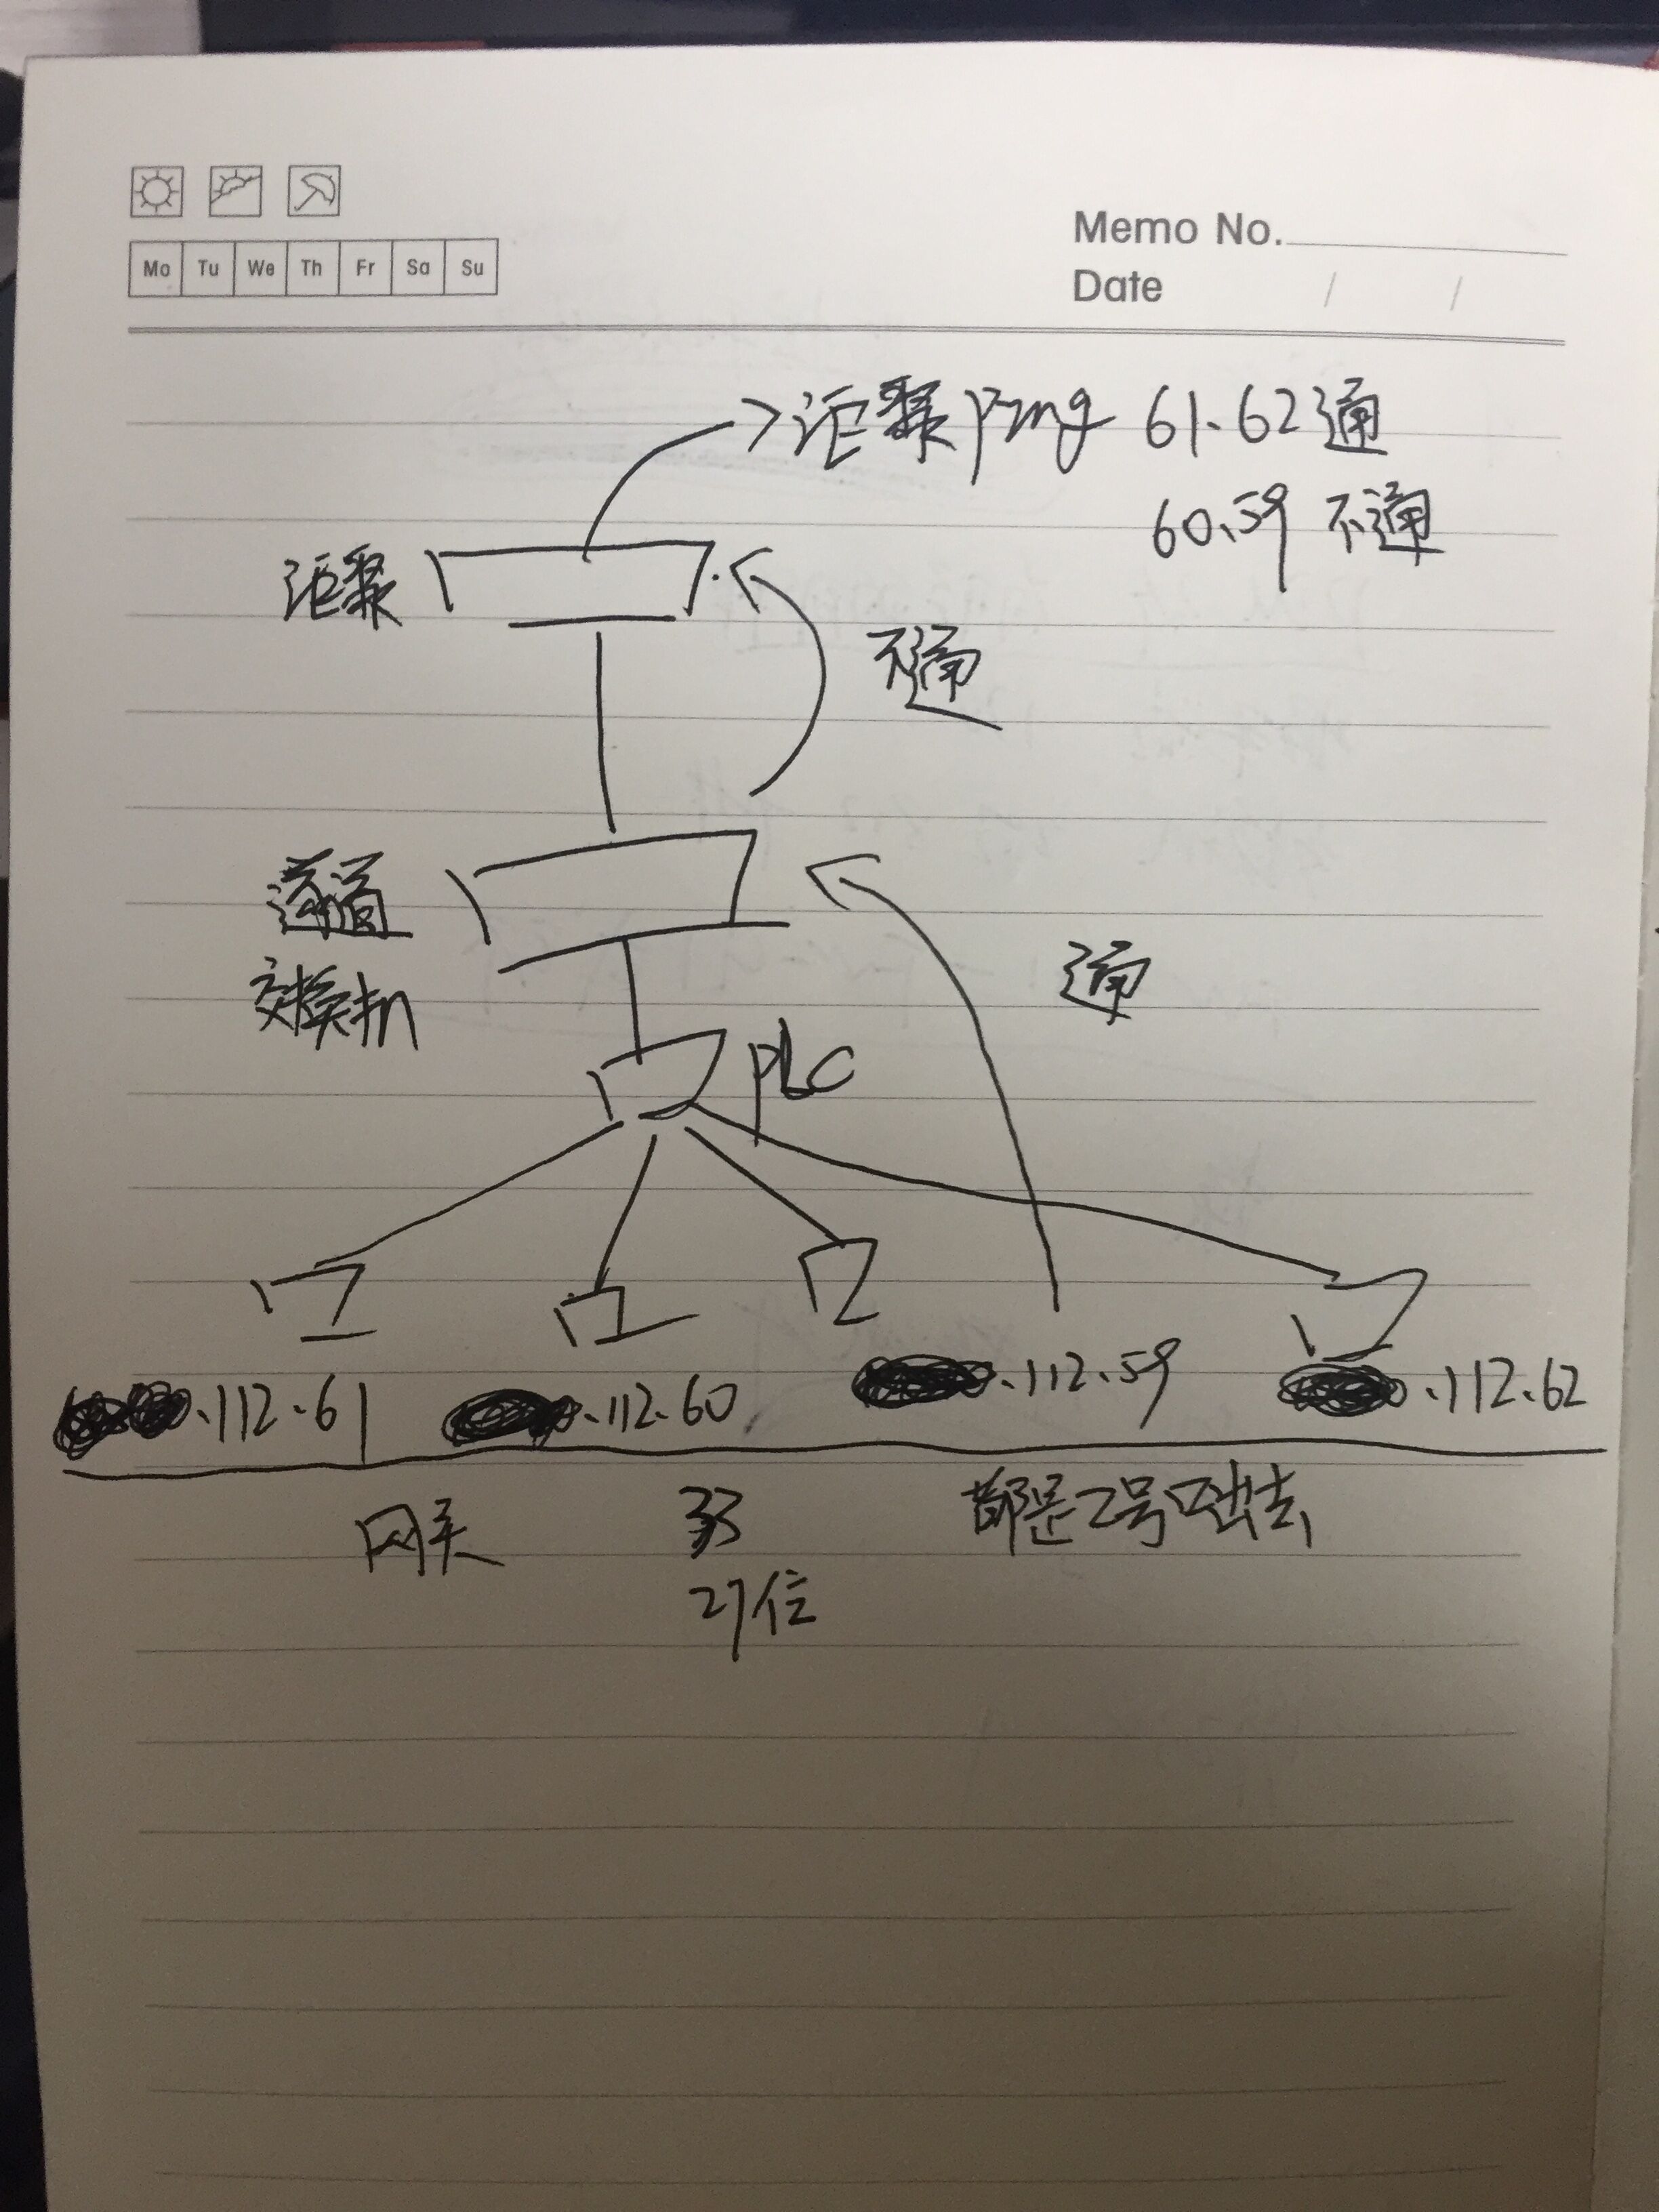 Mo Tu We Th Fr Sa Su
Memo No.
Date / /
汇聚 Ping 61.62 通
60.59 不通
汇聚
不通
交换机
通
PLC
.112.61 .112.60 .112.59 .112.62
网关 33 都是2号口出去
27位